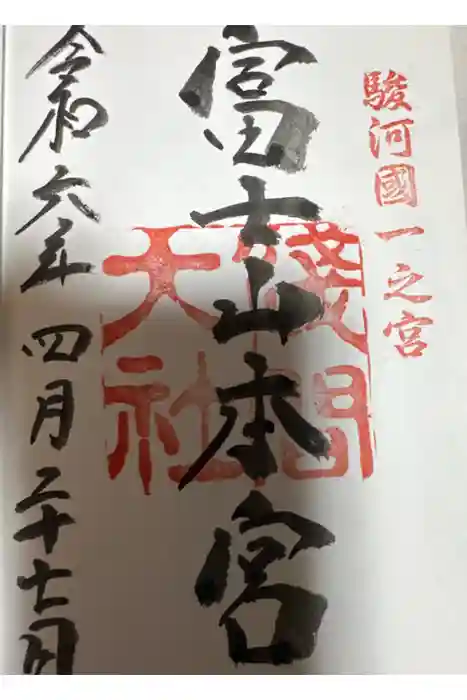 駿河國一之宮
富士山本宮
淺間
大社
令和六年四月二十七日